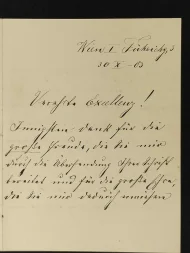 Wien I.
30 X - 05
Verehrte Exzellenz!
Innigsten Dank für die
große Freude, die Sie mir
durch die Übersendung Ihrer
bereitet und für die große Ehre,
die Sie mir dadurch erwiesen